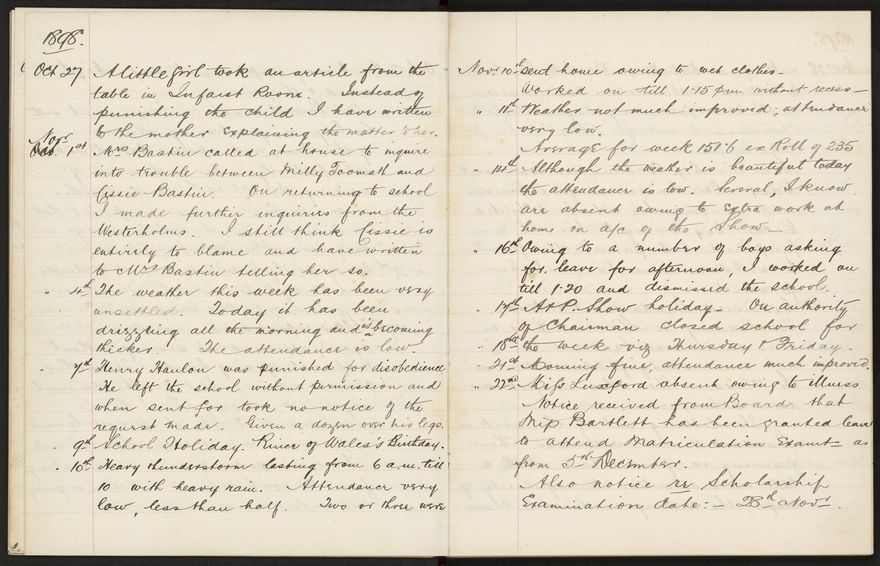 1898.
Oct 27. A little girl took an article from the
table in Infant Room. Instead of
punishing the child I have written
to the mother explaining the matter to her.
Novr 1st Mrs Bastin called at house to inquire
into trouble between Milly Toomath and
Cissie Bastin. On returning to school
I made further inquiries from the
Westerholms. I still think Cissie is
entirely to blame and have written
to Mrs Bastin telling her so.
" 4th The weather this week has been very
unsettled. Today it has been
drizzling all the morning and is becoming
thicker. The attendance is low.
" 7th Henry Hanlon was punished for disobedience
He left the school without permission and
when sent for took no notice of the
request made. Given a dozen over his legs.
" 9th School Holiday. Prince of Wales's Birthday.
" 10th Heavy thunderstorm lasting from 6 a.m. till
10 with heavy rain. Attendance very
low, less than half. Two or three were
Novr 10th send home owing to wet clothes.
Worked on till 1.15 p.m. without recess -
" 11th Weather not much improved; attendance
very low.
Average for week 151.6 ex Roll of 235
" 14th Although the weather is beautiful today
the attendance is low. Several, I know
are absent owing to extra work at
home on a/c of the Show -
" 16th Owing to a number of boys asking
for leave for afternoon, I worked on
till 1.20 and dismissed the school.
" 17th A & P. Show holiday - On authority
of Chairman closed school for
" 18th the week viz Thursday & Friday.
" 21st Morning fine, attendance much improved.
" 22nd Miss Luxford absent owing to illness
Notice received from Board that
Miss Bartlett has been granted leave
to attend Matriculation Examt - as
from 5th December.
Also notice re Scholarship
Examination date: - 28th Novr.